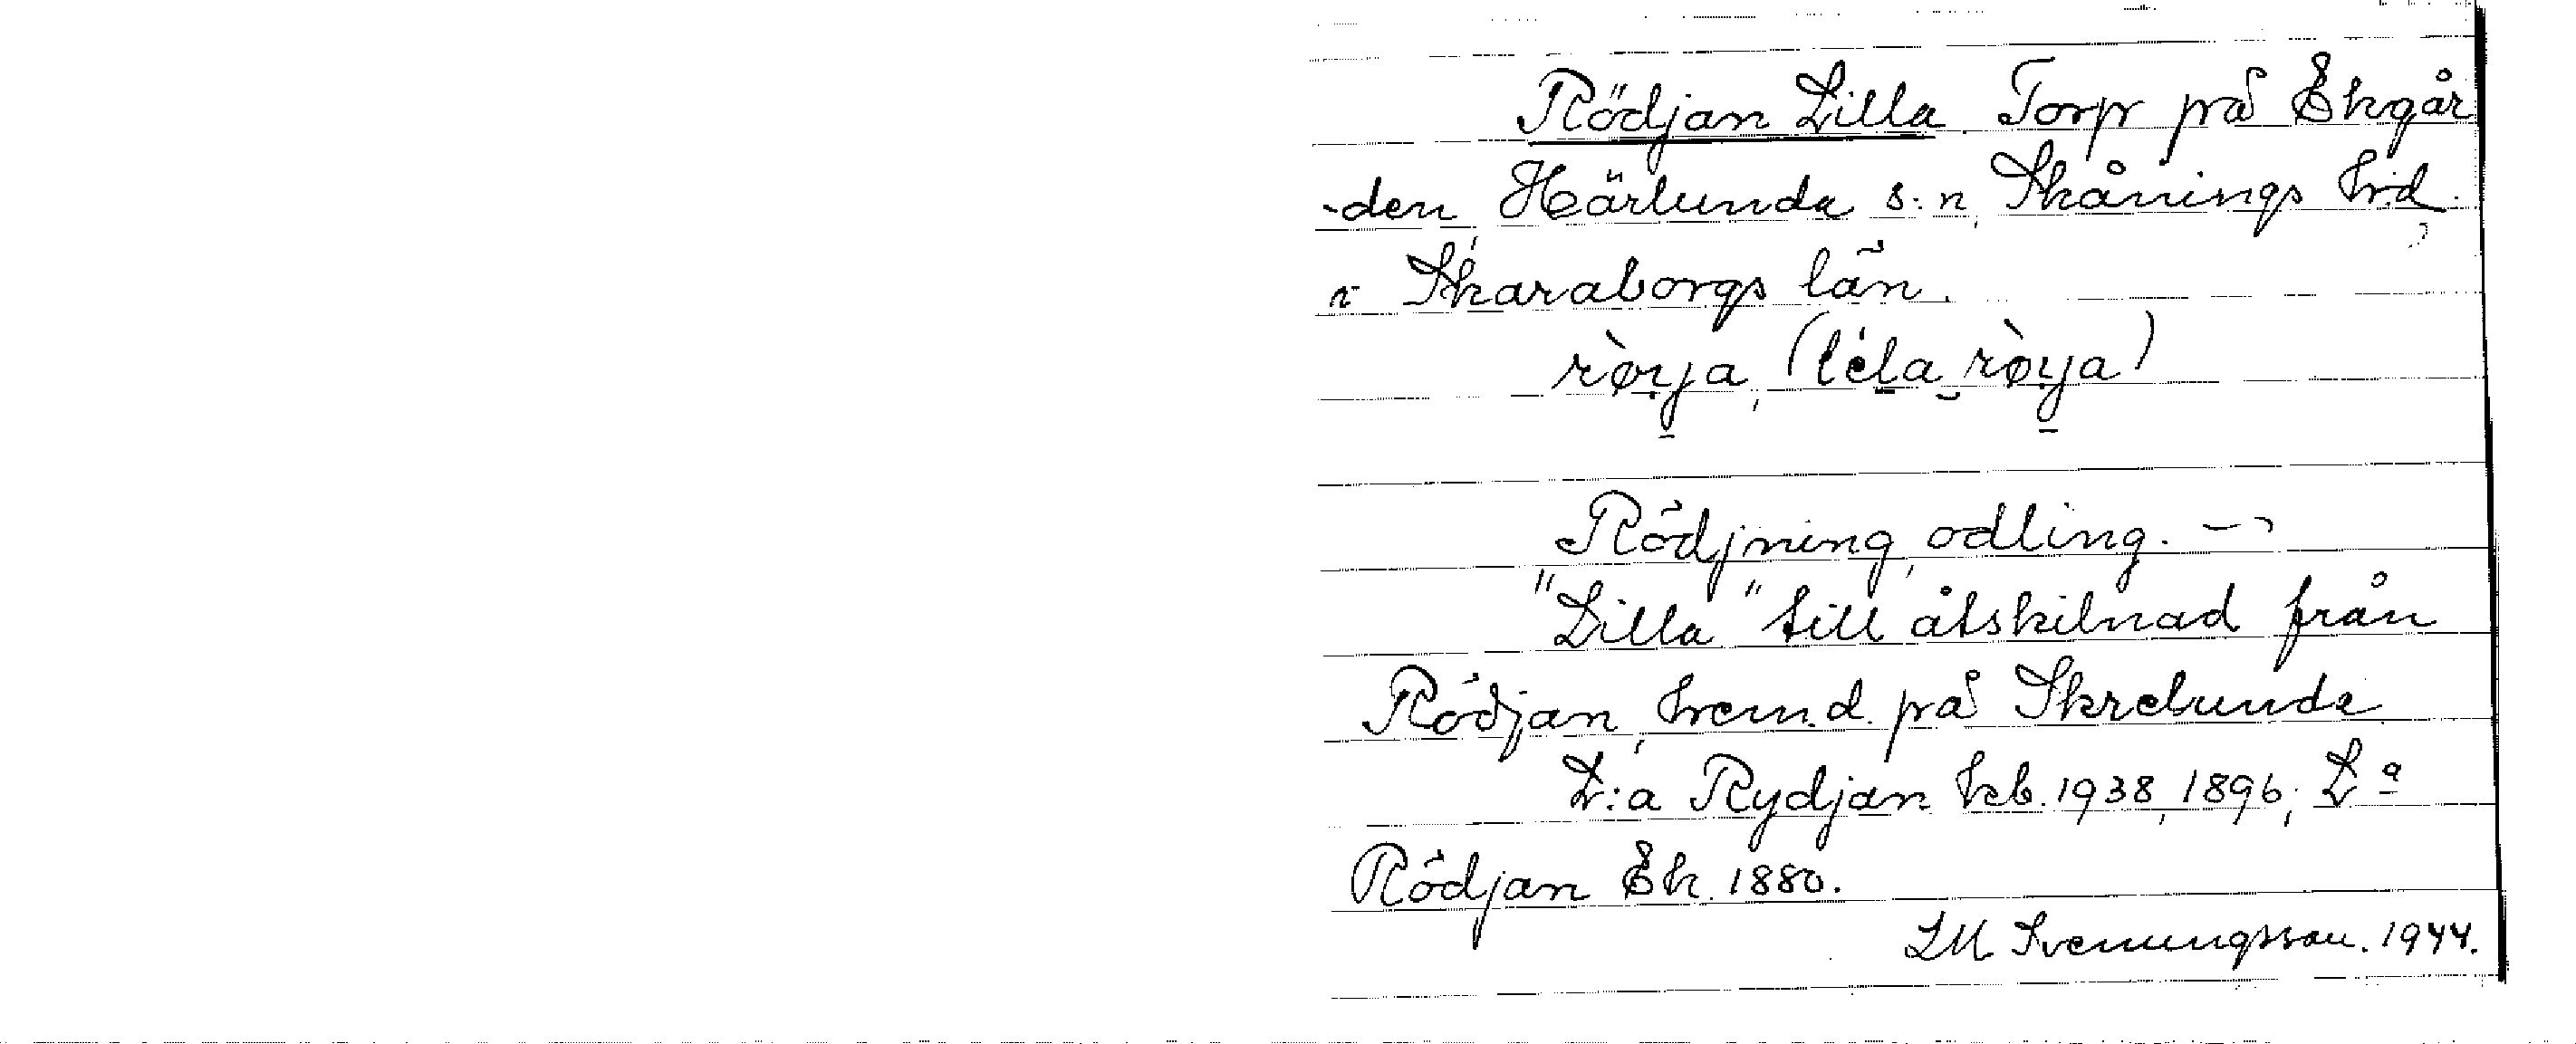 Rödjan Lilla Torp på Ekgår
-den, Härlunda s:n, Skånings hd.
i Skaraborgs län.
ròrja, (léla ròrja)
Rödjning, odling. —
"Lilla" till åtskilnad från
Rödjan, hem.d. på Skrelunda
L:a Rydjan kb. 1938, 1896; La
Rödjan Ek. 1880.
LM Svenungsson. 1944.